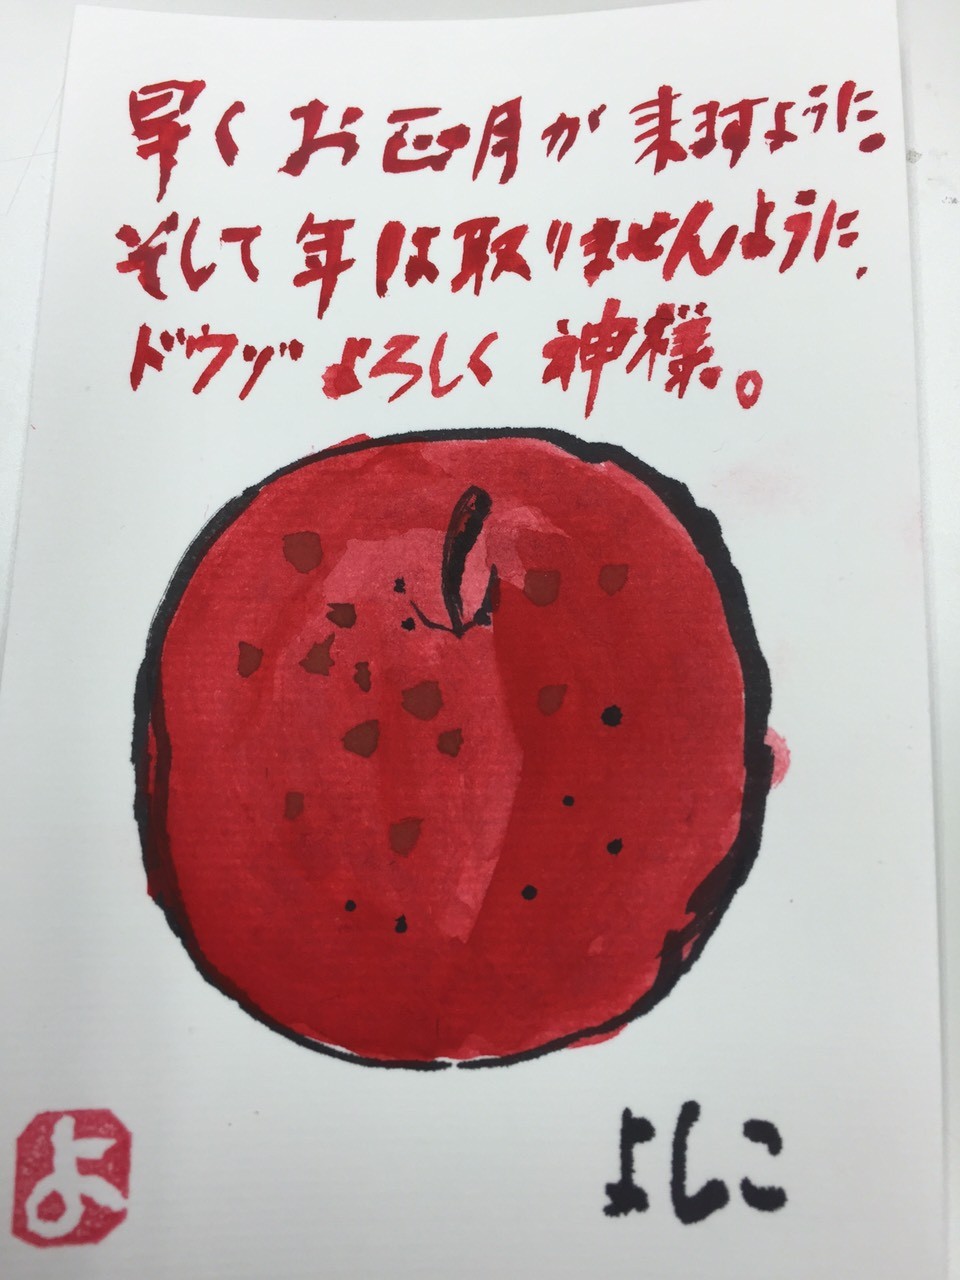 早くお正月が来ますように。
そして年は取りませんように、
ドウゾよろしく神様。
よしこ
よ